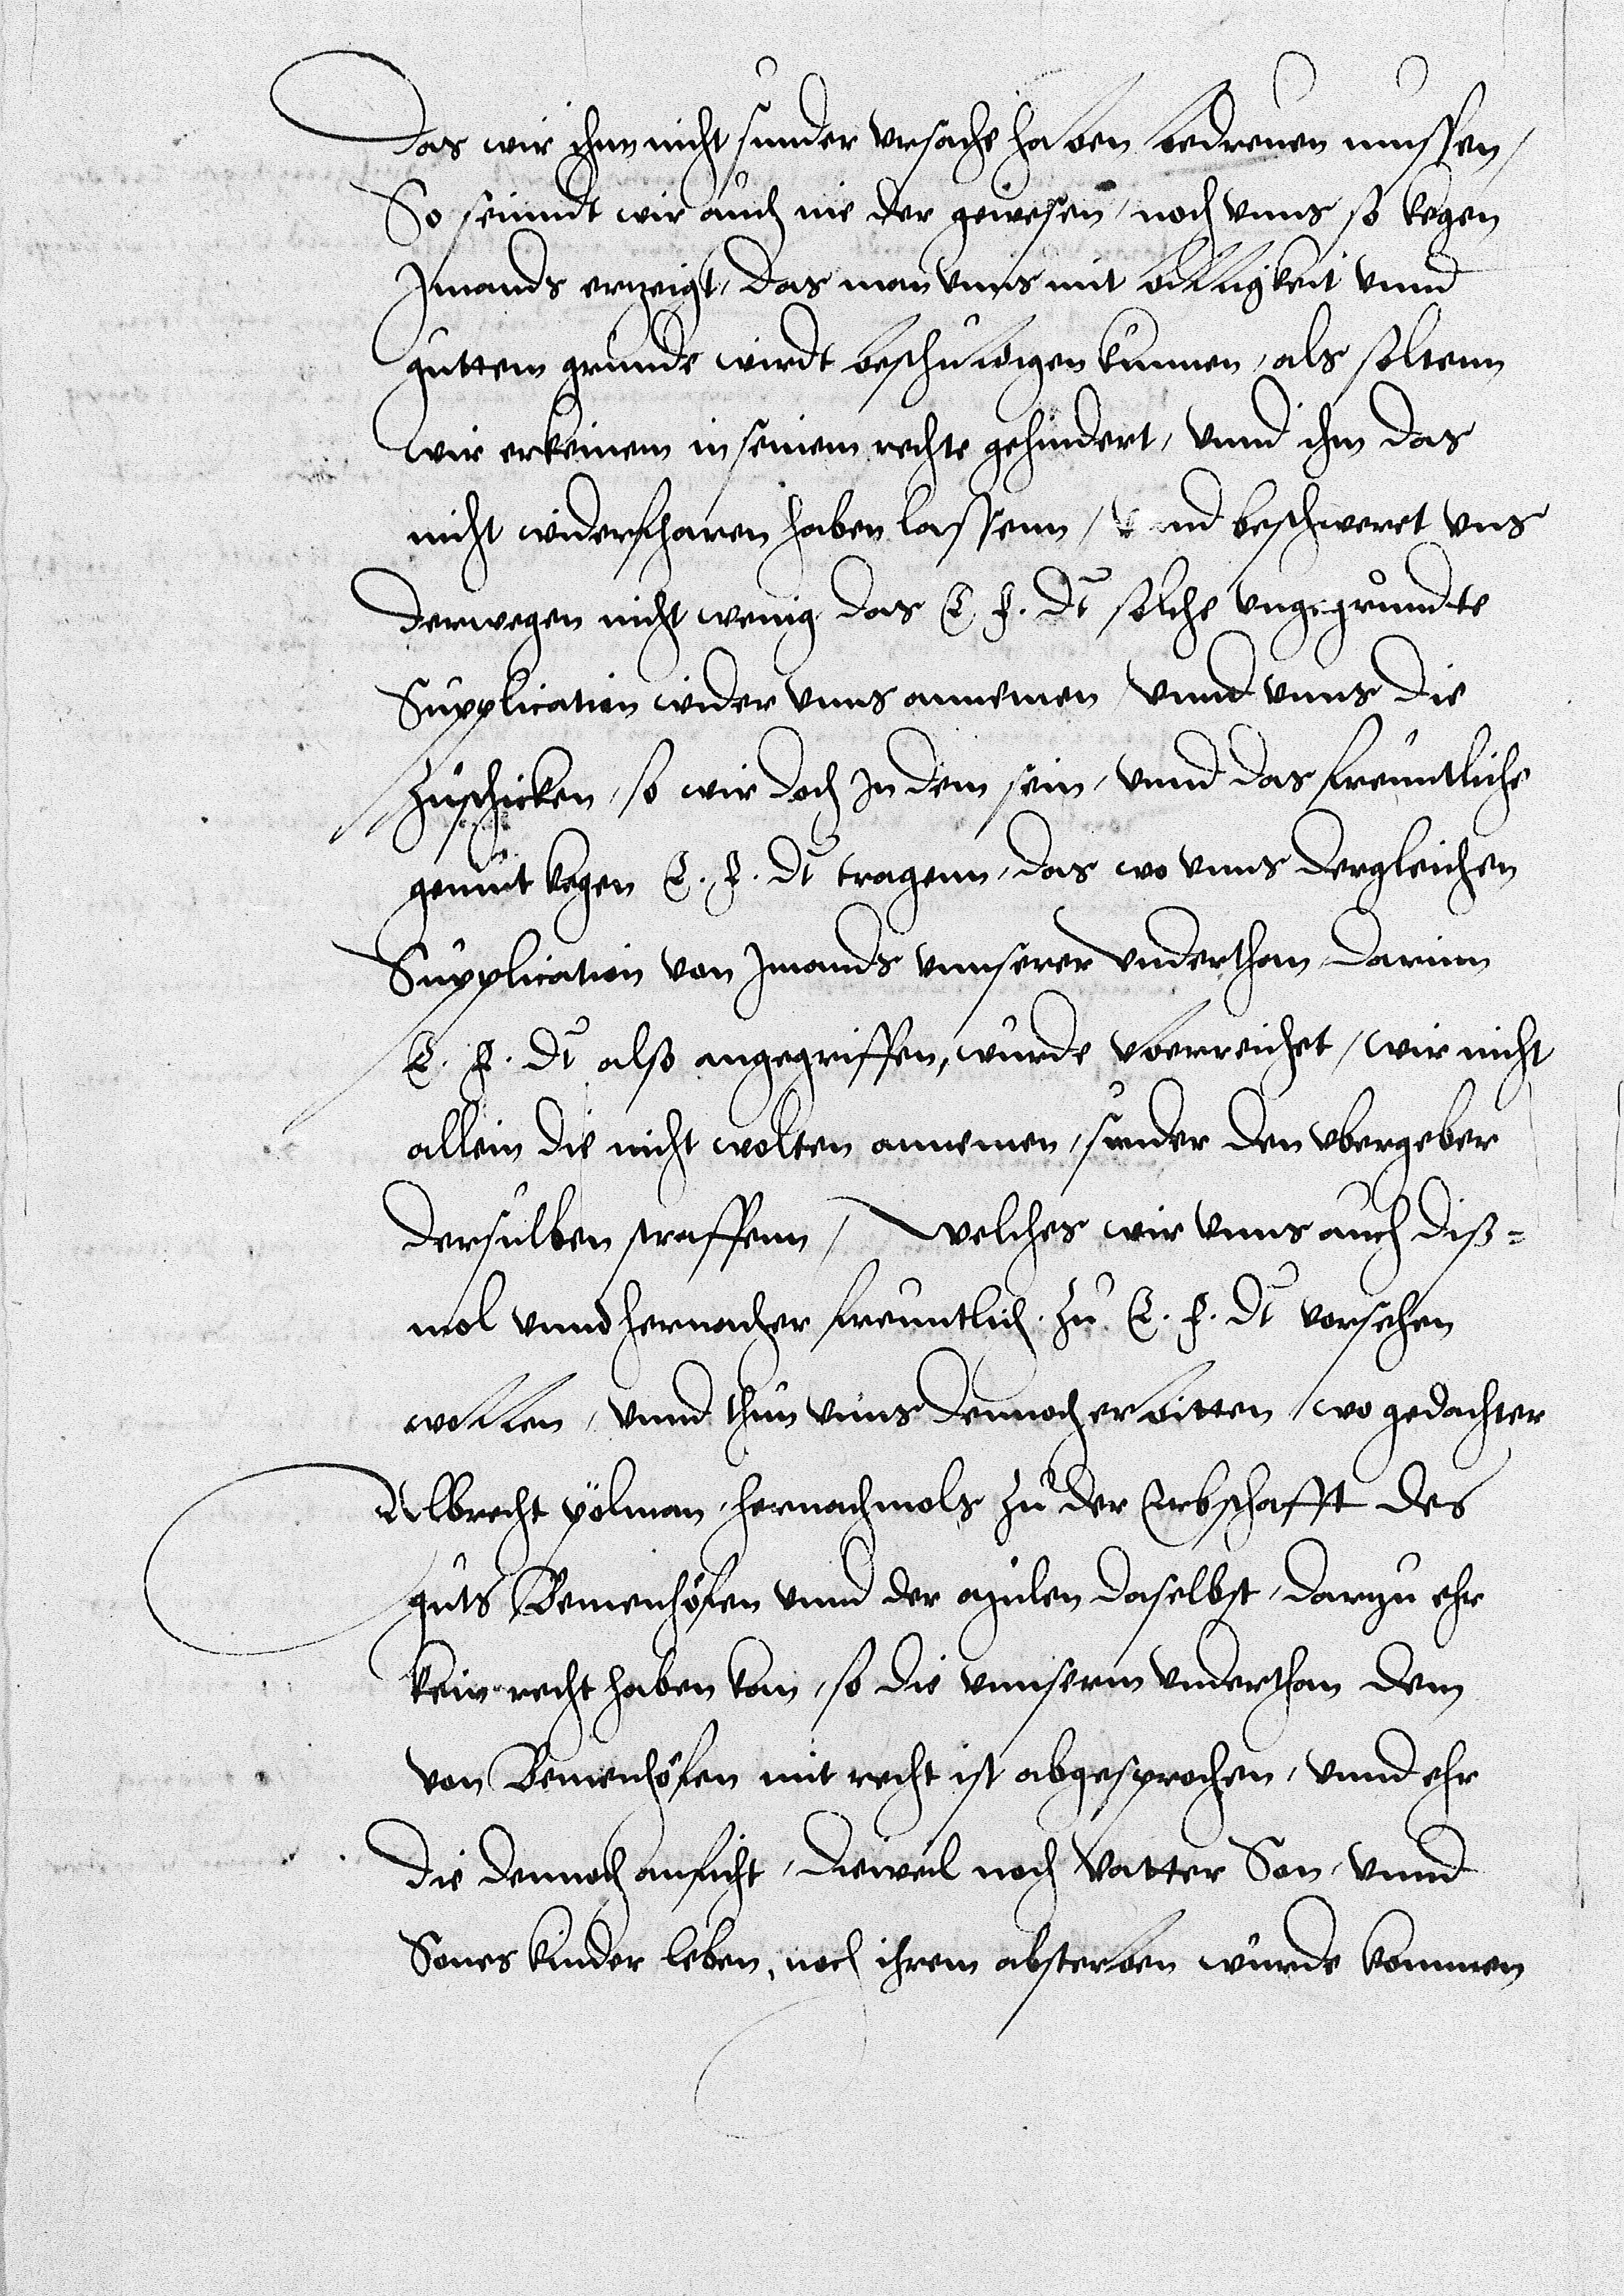 Das wir ihm nicht sunder ursache haben bedrewen mussen /
So seinndt wir auch nie der gewesen, noch unns so kegen
Jmands erzeigt, das man unns mit billigkeit unnd
guttem grunde wirdt beschuldigen kunnen, als soltenn
wir erkeinem in seinem rechte gehindert, unnd ihm das
nicht widerfharen haben lassenn / unnd beschweret uns
derwegen nicht wenig das E. f. Dt solche ungegrundte
Supplication wider unns annemen unnd unns die
zuschicken, so wir doch Jn dem sein, unnd das freuntliche
gemut kegen E. f. Dt tragenn, das wo unns dergleichen
Supplication von Jmands unnserer underthan darinn
E. f. Dt also angegriffen, wurde uberreichet / wir nicht
allein die nicht wolten annemen, sunder den ubergeber
derselben straffenn / welches wir unns auch diß=
mol unnd hernacher freuntlich zu E. f. Dt vorsehen
wollen, unnd thun unns dennoch erbitten / wo gedachter
Albrecht pölman, hernachmols zu der Erbschafft des
guts Bemenhöfen unnd der daselbst, darzu ehr
kein recht haben kan, so die unnserm underthan dem
von Bemenhöfen mit recht ist abgesprochen, unnd ehr
die dennoch anficht, dieweil noch Vatter Son, unnd
Sones kinder leben, noch ihrem absterben wurde kommen